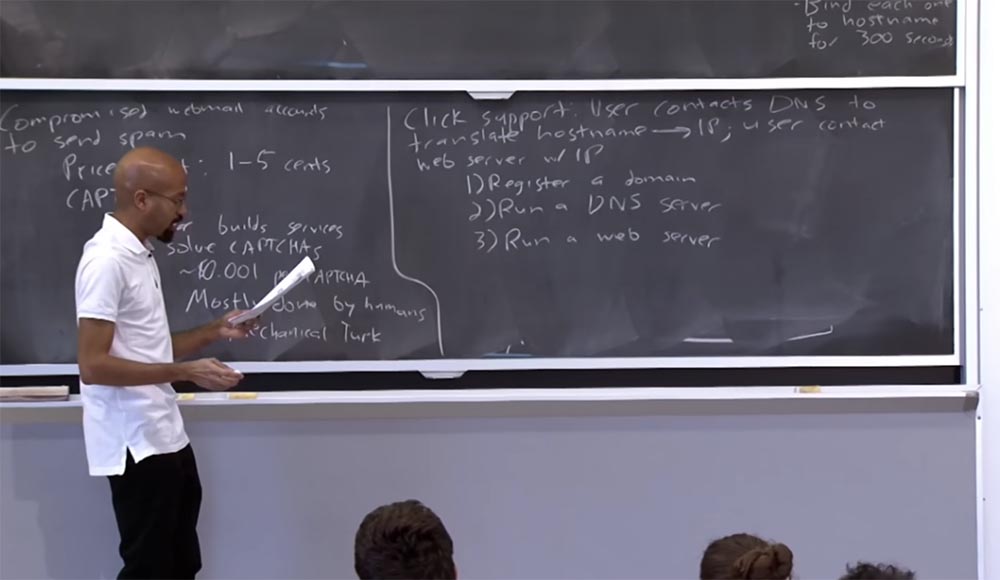 - Bind each
to hostname
for 300 seconds
Compromised webmail accounts
to send spam
1-5 cents
builds services
solve CAPTCHAs
~$0.001
Mostly done by humans
Turk
Click support: User contacts DNS to
translate hostname → IP; user contact
web server w/ IP
1) Register a domain
2) Run a DNS server
3) Run a web server